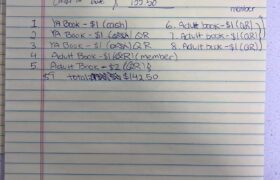 122.50
member
1 YA Book - $1 (cash)
6. Adult book - $1 (QR)
2 YA Book - $1 QR
7. Adult book - $1 (QR)
3 YA Book - $1 QR
8. Adult book - $1 (QR)
4 Adult Book - $1 (QR) (member)
5 Adult Book - $2 (QR)
total $142.50